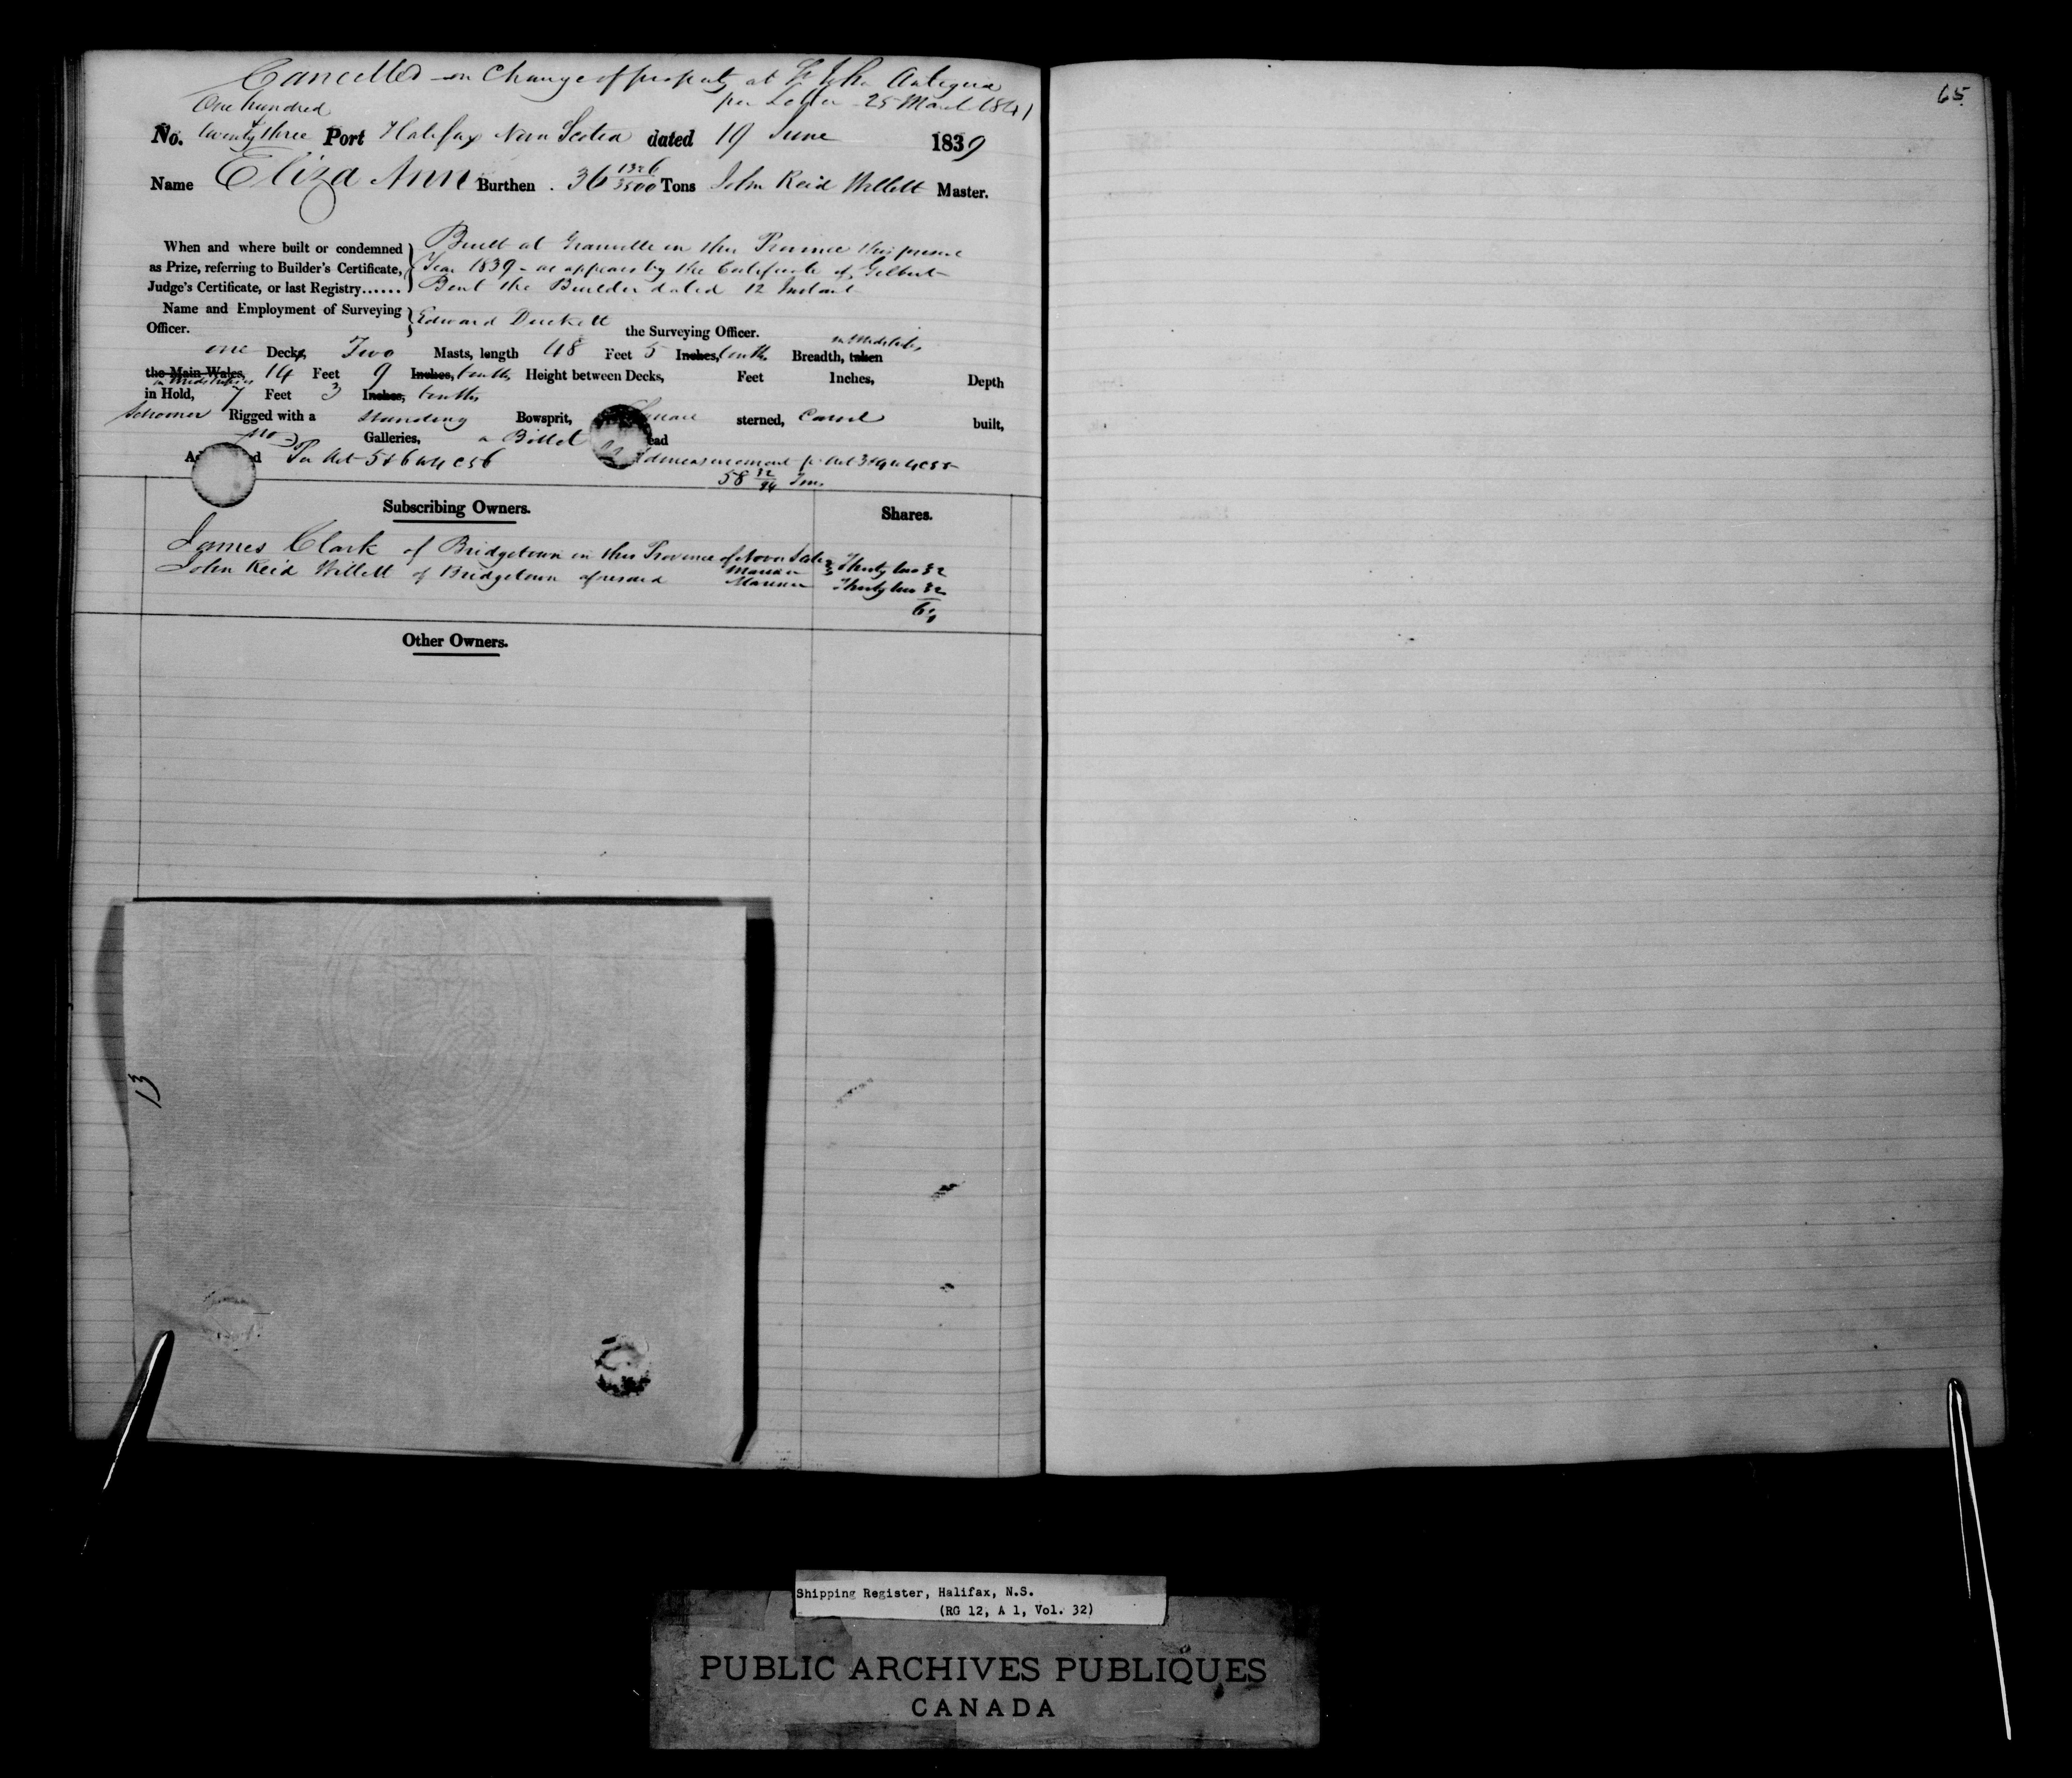 Cancelled on Change of property at St John Antigua
per Letter 25 March 1841
65
One hundred
&
No. twenty three Port Halifax Nova Scotia dated 19 June 1839
Name Eliza Ann Burthen 36 1326/3500 Tons John Reid Willett Master.
When and where built or condemned as Prize, referring to Builder's Certificate, Judge's Certificate, or last Registry......
Built at Granville in this Province this present
Year 1839 - as appears by the Certificate of Gilbert
Bent the Builder dated 12 Instant
Name and Employment of Surveying Officer.
Edward Duckett the Surveying Officer.
in Midships
one Decks, Two Masts, length 48 Feet 5 Inches, tenths Breadth, taken
the Main Wales, 14 Feet 9 Inches, tenths Height between Decks, Feet Inches, Depth
in Midships
in Hold, 7 Feet 3 Inches, tenths
Schooner Rigged with a standing Bowsprit, Square sterned, Carvel built,
no Galleries, a Billet ead
Per Act 5 & 6 W 4 C 56 Admeasurement p Act 3 & 4 W 4 C 55
58 32/94 Tons
Subscribing Owners. Shares.
James Clark of Bridgetown in this Province of Nova Scotia Mariner Thirty two 32
John Reid Willett of Bridgetown aforesaid Mariner Thirty two 32
64
Other Owners.
13
Shipping Register, Halifax, N.S.
(RG 12, A 1, Vol. 32)
PUBLIC ARCHIVES PUBLIQUES
CANADA